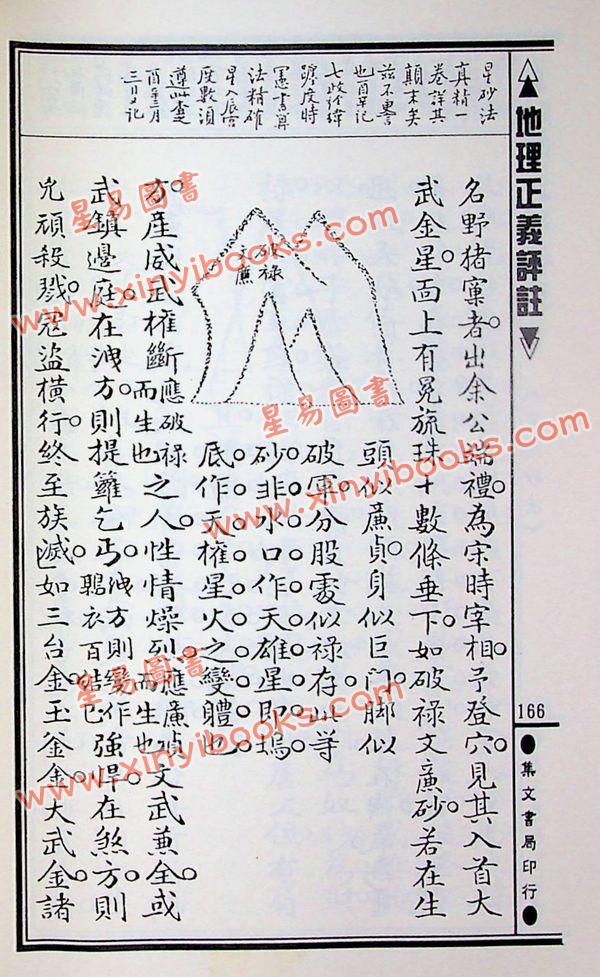 地理正義評註
166
集文書局印行
星砂法
真精一
卷詳其
顛末矣
七政經緯
躔度時
憲書算
法精確
星入辰宮
度數須
三日又記
名野猪窠者。出余公端禮。為宋時宰相。予登穴。見其入首大
武金星。面上有冕旒珠十數條垂下。如破禄文廉砂。若在生
破禄
文廉
頭似廉貞。身似巨門。脚似
破軍。分股處似禄存。此等
砂。非水口作天雄星。即塢
底作天權星。火之變體也。
方。產威武權斷應破禄而生也之人。性情燥烈。應廉貞而生也文武兼全。或
武鎮邊庭。在洩方。則提籬乞丐。洩方則變作鶉衣百結已強悍。在煞方。則
兇頑殺戮。寇盜橫行。終至族滅。如三台金。玉釜金。大武金。諸
星易圖書
www.xinyibooks.com
星易圖書
www.xinyibooks.com
星易圖書
www.xinyibooks.com